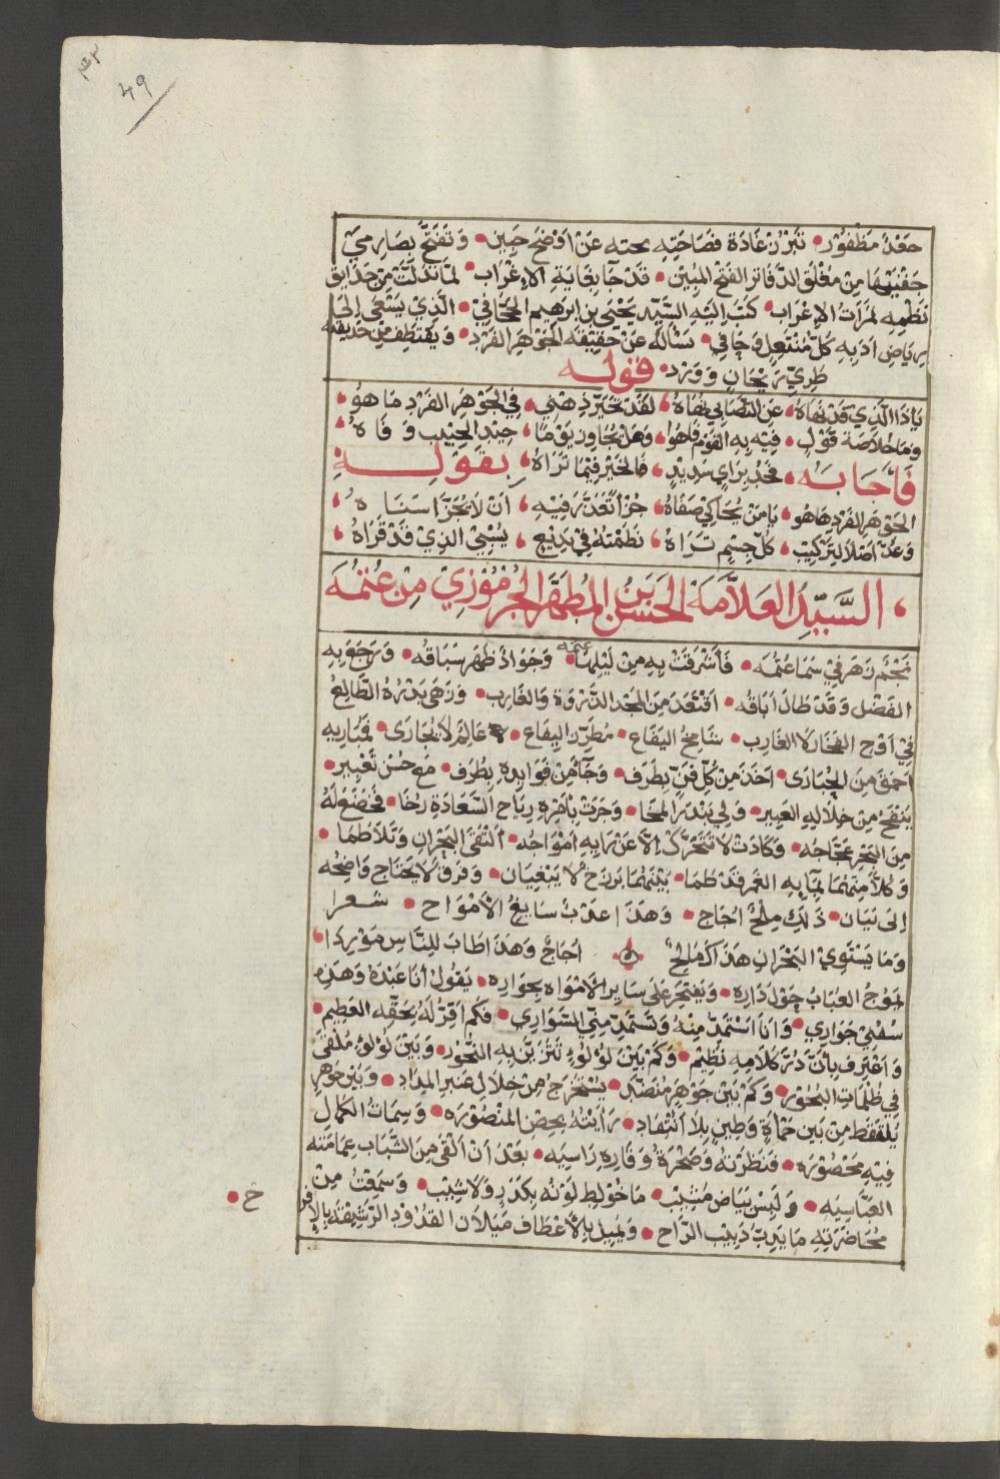 49
جعد مظفور • تبرز غادة فصاحته عن اوضح جبين • وتفتح بصارمي
جفنيها من مغلق الدفاتر الفتح المبين • قد جا بغاية الاغراب • لما تدلت من حدايق
نظمه ثمرات الاعراب • كتب اليه السيد يحيى بن ابرهيم الجحافي • الذي يسعى الى
رياض ادبه كل منتعل وحافي • يساله عن حقيقة الجوهر الفرد • ويقتطف من حديقته
طري ريحان وورد • قوله
ياذا الذي قد نهاه • عن التصابي نهاه • لقد تحير ذهني • في الجوهر الفرد ما هو •
وما خلاصة قول • فيه به القوم فاهوا • وهل يجاور يوما • جيد الحبيب وفاه •
فاجابه • فخذ براي سديد • فالخير فيما تراه • بقوله
الجوهر الفرد ها هو • يا من يحاكي صفاه • جزء تعذر فيه • ان لا يجزا سناه •
وعد اصلا لتركيب • كل جسم تراه • نظمته في بديع • يسبي الذي قد قراه •
، السيد العلامة الحسن بن المطهر الجرموزي من عتمه
نجم زهر في سما عتمه • فاشرقت به من ليلها • وجواد ظهر سباقه • ورجع به
الفضل وقد طال اباقه • اقتعد من المجد الذروة والغارب • وزهى بدره الطالع
في اوج الفخار لا الغارب • شامخ اليفاع • مطرز اليفاع • عالم لا يجارى • فمباريه
احمق من الحبارى • اخذ من كل فن بطرف • وجا من فوايده بطرف • مع حسن تعبير •
ينفح من خلاله العبير • ولي بندر المخا • وجرت بامره رياح السعادة رخا • فخضع له
من البحر عجاجه • وكادت لا تتحرك الا عن رايه امواجه • التقى البحران وتلاطما •
وكلا منهما بمايه الغمر قد طما • بينهما برزخ لا يبغيان • وفرق لا يحتاج واضحه
الى بيان • ذلك ملح اجاج • وهذا عذب سايغ الامواج • شعرا
وما يستوي البحران هذاك مالح • اجاج وهذا طاب للناس موردا •
لموج العباب حول داره • ويفتخر على ساير الامواه بجواره • يقول انا عبده وهذه
سفني جواري • وانا استمد منه وتستمد مني السواري • فكم اقر له بحقه العظيم •
واعترف بان در كلامه نظيم • وكم بين لؤلؤ تتزين به النحور • وبين لؤلؤ ملقى
في ظلمات البحور • وكم بين جوهر منضد • يستخرج من خلال عنبر المداد • وبين جوهر
يلتقط من بين حماة وطين بلا انتقاد • رايته بحصن المنصوره • وسمات الكمال
فيه محصوره • فنظرته وصخرة وقاره راسيه • بعد ان القى من الشباب عمامته
العباسيه • ولبس بياض مشيب • ما خولط لونه بكدر ولا شيب • وسمعت من
محاضرته ما يدب دبيب الراح • ويميل بالاعطاف ميلان القدود الرشيقة بالافر
خ •